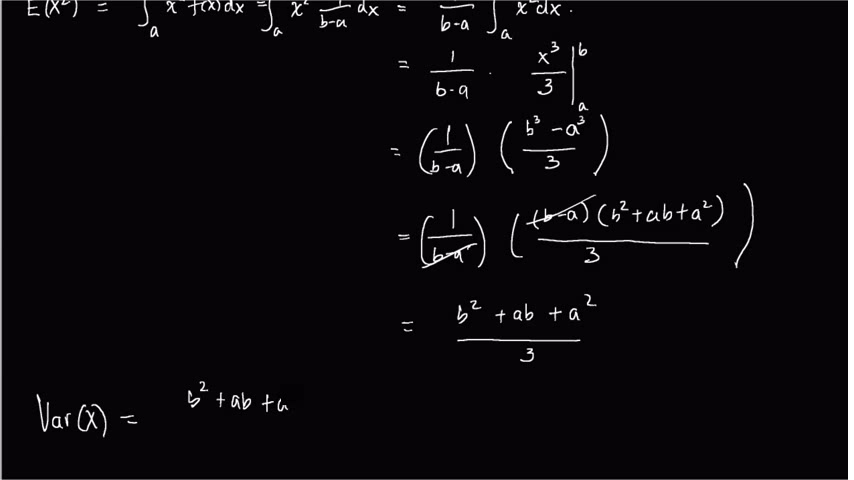 E(X²) = ∫ₐ x² f(x) dx = ∫ₐ x² 1/(b-a) dx = 1/(b-a) ∫ₐ x² dx.
= 1/(b-a) · x³/3 |ₐᵇ
= (1/(b-a)) ((b³ - a³)/3)
= (1/(b-a)) ((b-a)(b² + ab + a²)/3)
= (b² + ab + a²)/3
Var(X) = b² + ab + a